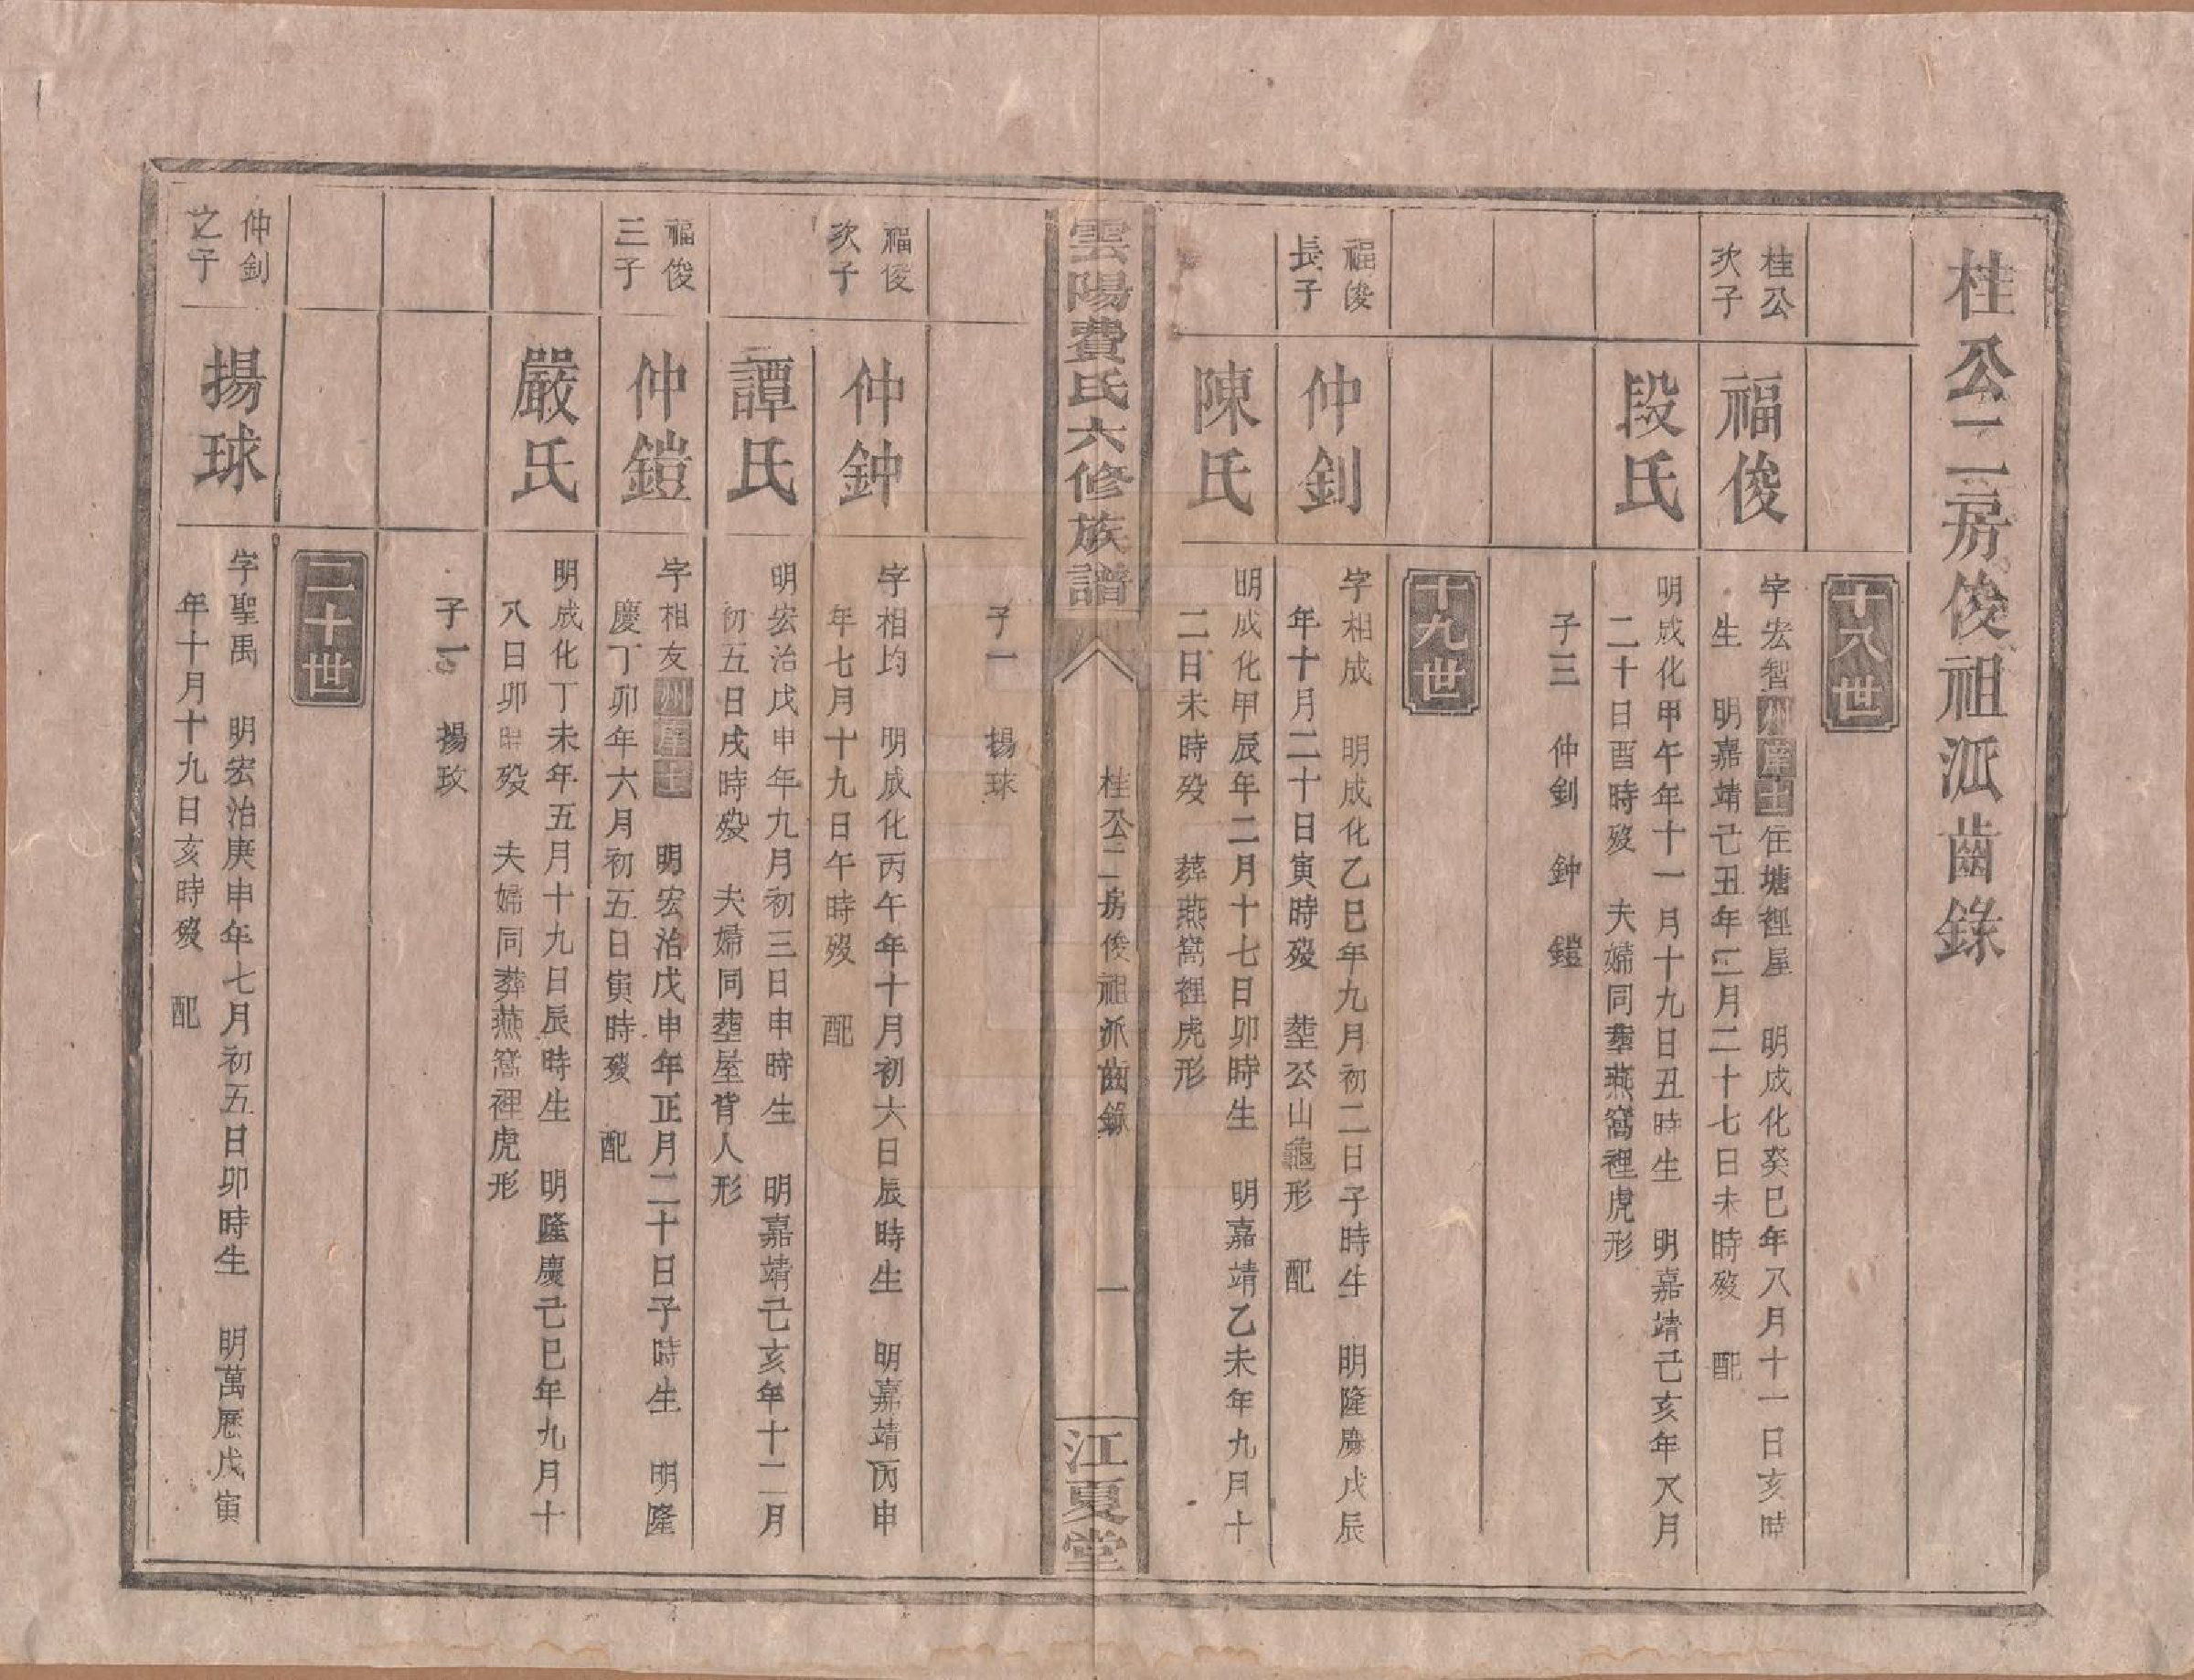 桂公二房俊祖派齒錄
十八世
桂公
次子
福俊
字宏智州庠士住塘裡屋　明成化癸巳年八月十一日亥時
生　明嘉靖己丑年二月二十七日未時歿　配
段氏
明成化甲午年十一月十九日丑時生　明嘉靖己亥年八月
二十日酉時歿　夫婦同塟燕窩裡虎形
子三　仲釗　鈡　鎧
十九世
福俊
長子
仲釗
字相成　明成化乙巳年九月初二日子時生　明隆慶戊辰
年十月二十日寅時歿　塟公山龜形　配
陳氏
明成化甲辰年二月十七日卯時生　明嘉靖乙未年九月十
二日未時歿　葬燕窩裡虎形
雲陽費氏六修族譜
桂公二房俊祖派齒錄
一
江夏堂
子一　揚球
福俊
次子
仲鈡
字相均　明成化丙午年十月初六日辰時生　明嘉靖丙申
年七月十九日午時歿　配
譚氏
明宏治戊申年九月初三日申時生　明嘉靖己亥年十二月
初五日戌時歿　夫婦同塟屋背人形
福俊
三子
仲鎧
字相友州庠士　明宏治戊申年正月二十日子時生　明隆
慶丁卯年六月初五日寅時歿　配
嚴氏
明成化丁未年五月十九日辰時生　明隆慶己巳年九月十
八日卯時歿　夫婦同葬燕窩裡虎形
子一　揚玫
二十世
仲釗
之子
揚球
字聖禹　明宏治庚申年七月初五日卯時生　明萬歷戊寅
年十月十九日亥時歿　配